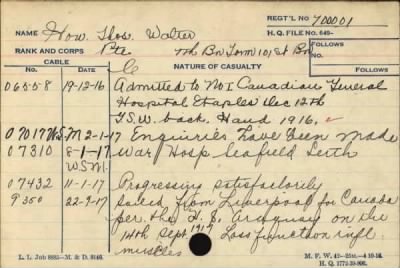 REGT'L No 700001
NAME How. Thos. Walter
H. Q. FILE No. 649-
RANK AND CORPS Pte 7th Bn Form 101st Bn
FOLLOWS No.
CABLE NATURE OF CASUALTY FOLLOWS
No. DATE C
06558 19-12-16 Admitted to No 1 Canadian General
Hospital Etaples Dec 12th
G.S.W. back. Hand 1916.
07017 W.S.M 2-1-17 Enquiries have been made
07310 8-1-17 War Hosp Seafield Leith
W.S.M.
07432 11-1-17 Progressing satisfactorily
9350 22-9-17 Sailed from Liverpool for Canada
per the H.S. Araguay on the
14th Sept 1917 Loss function infl.
muscles
L. L. Job 8885—M. & D. 8146.
M. F. W. 42—
H. Q. 1772-39-893.